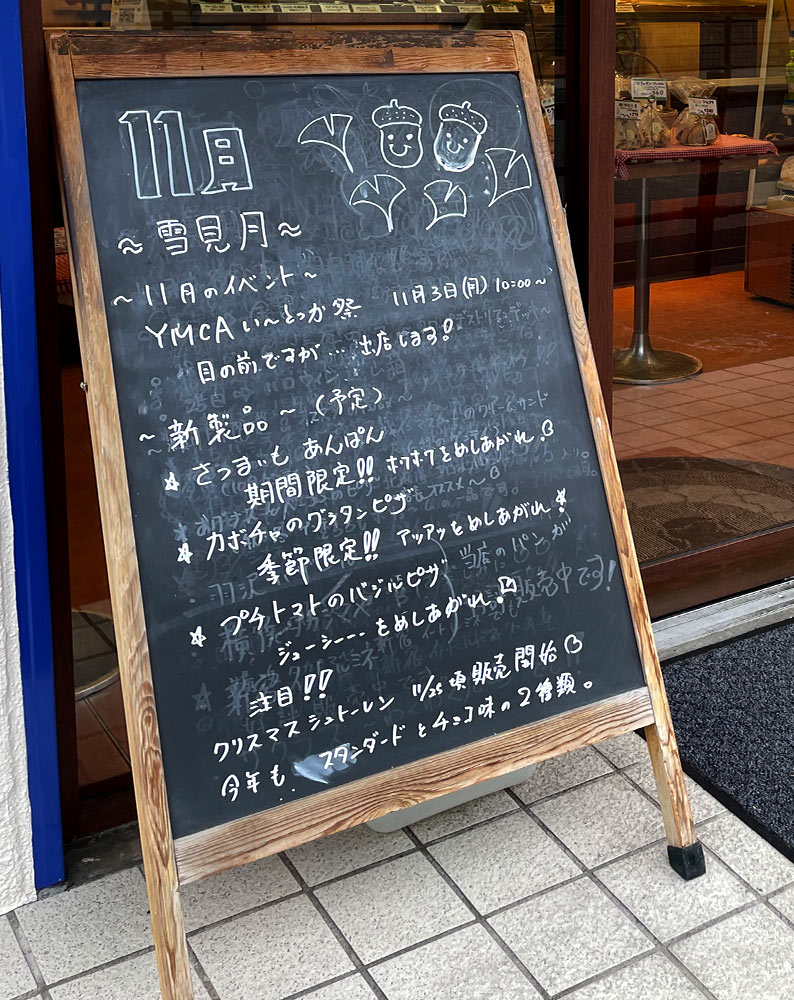 11月
~雪見月~
~11月のイベント~
YMCAい~とつか祭 11月3日(月) 10:00~
目の前ですが… 出店します!
~新製品~(予定)
☆さつまいも あんぱん
期間限定!! ホクホクをめしあがれ。
☆カボチャのグラタンピザ
季節限定!! アツアツをめしあがれ!
☆プチトマトのバジルピザ
ジューシー---をめしあがれ!
注目!!
クリスマスシュトーレン 11/25頃販売開始
今年も スタンダードとチョコ味の2種類。